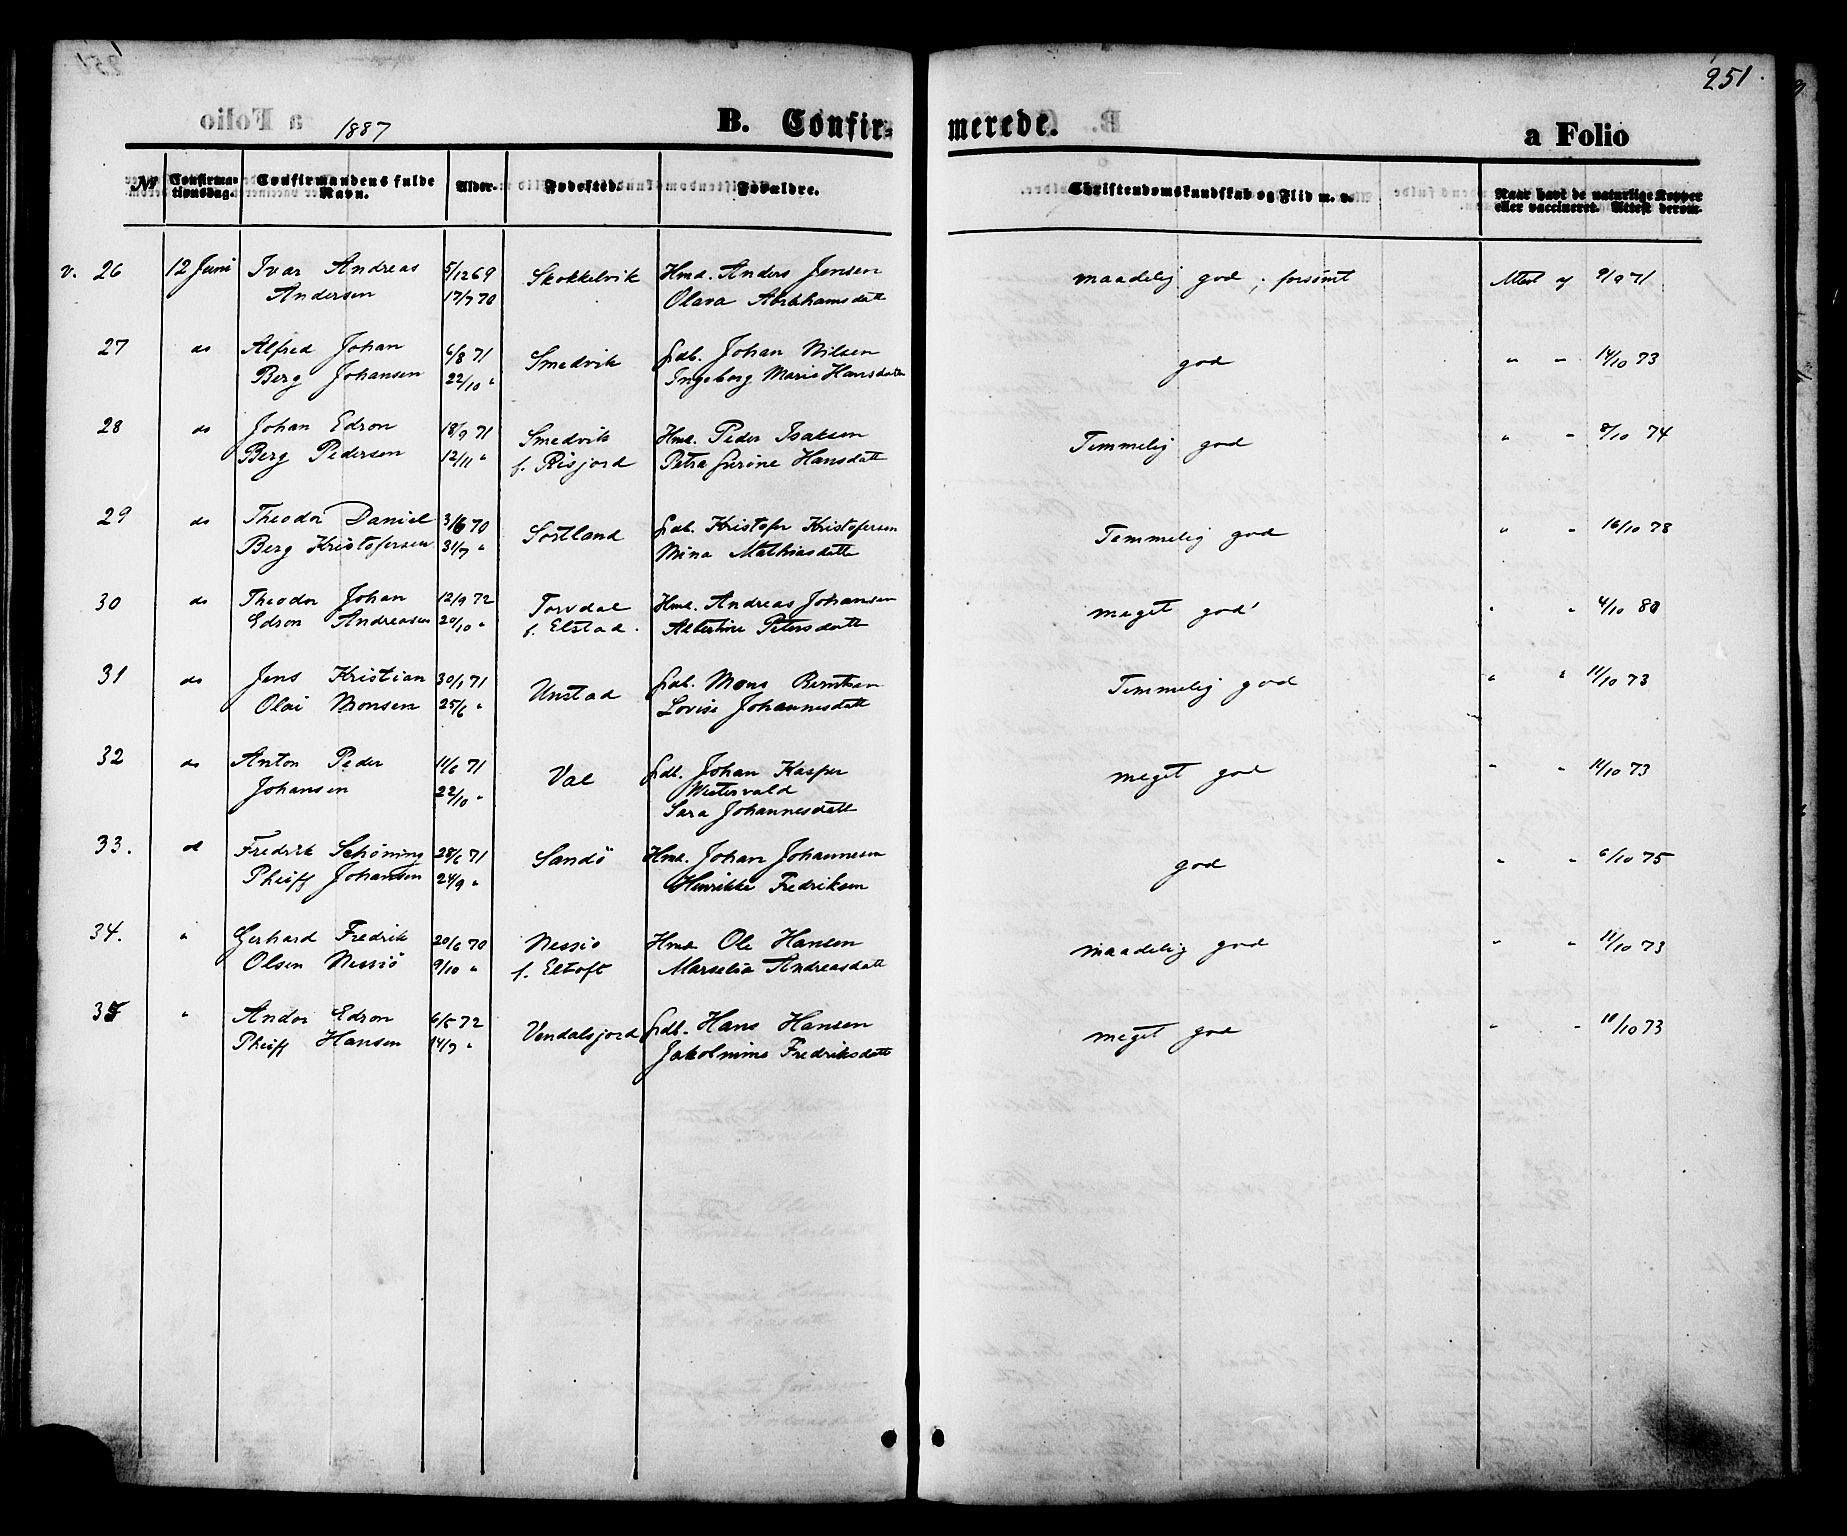 251
1887
B. Confirmerede.
a Folio
№ Confirmationsdag. Confirmandens fulde Navn. Alder. Fødested. Forældre. Christendomskundskab og Flid m. v. Naar havt de naturlige Kopper eller vaccineret. Attest derom.
v. 26 12 Juni Ivar Andreas 5/12 69 Skokkelvik Hmd. Anders Jensen maadelig god; forsømt Attest af 9/9 71
Andersen 17/7 70 Olava Abrahamsdatt
27 do Alfred Johan 6/8 71 Smedvik Gdb. Johan Nilsen god " " 14/10 73
Berg Johansen 22/10 " Ingeborg Marie Hansdatt
28 do Johan Edron 18/9 71 Smedvik Hmd. Peder Isaksen Temmelig god " " 8/10 74
Berg Pedersen 12/11 " f. Risjord Petra Gurine Hansdatt
29 do Theodor Daniel 3/6 70 Sortland Gdb. Kristofer Kristofersen Temmelig god " " 16/10 78
Berg Kristofersen 31/7 " Mina Mathiasdatt
30 do Theodor Johan 12/9 72 Torvdal Hmd. Andreas Johansen meget god " " 4/10 80
Edron Andreasen 20/10 " f. Elstad. Albertine Petersdatt
31 do Jens Kristian 30/1 71 Unstad Gdb. Mons Berntsen Temmelig god " " 11/10 73
Olai Monsen 25/6 " Lovise Johannesdatt
32 do Anton Peder 11/6 71 Val Gdb. Johan Kasper meget god " " 11/10 73
Johansen 22/10 " Westervald
Sara Johannesdatt
33. do Fredrik Schøning 28/6 71 Sandö Hmd. Johan Johannesen god " " 6/10 75
Pheiff Johansen 24/9 " Henrikke Fredriksen
34. " Gerhard Fredrik 20/6 70 Nessiö Hmd Ole Hansen maadelig god " " 11/10 73
Olsen Nessiö 9/10 " f. Eltoft Marselia Andreasdatt
35 " Andor Edron 6/5 72 Vendalsjord Gdb. Hans Hansen meget god " " 11/10 73
Pheiff Hansen 14/7 " Jakolmine Fredriksdatt